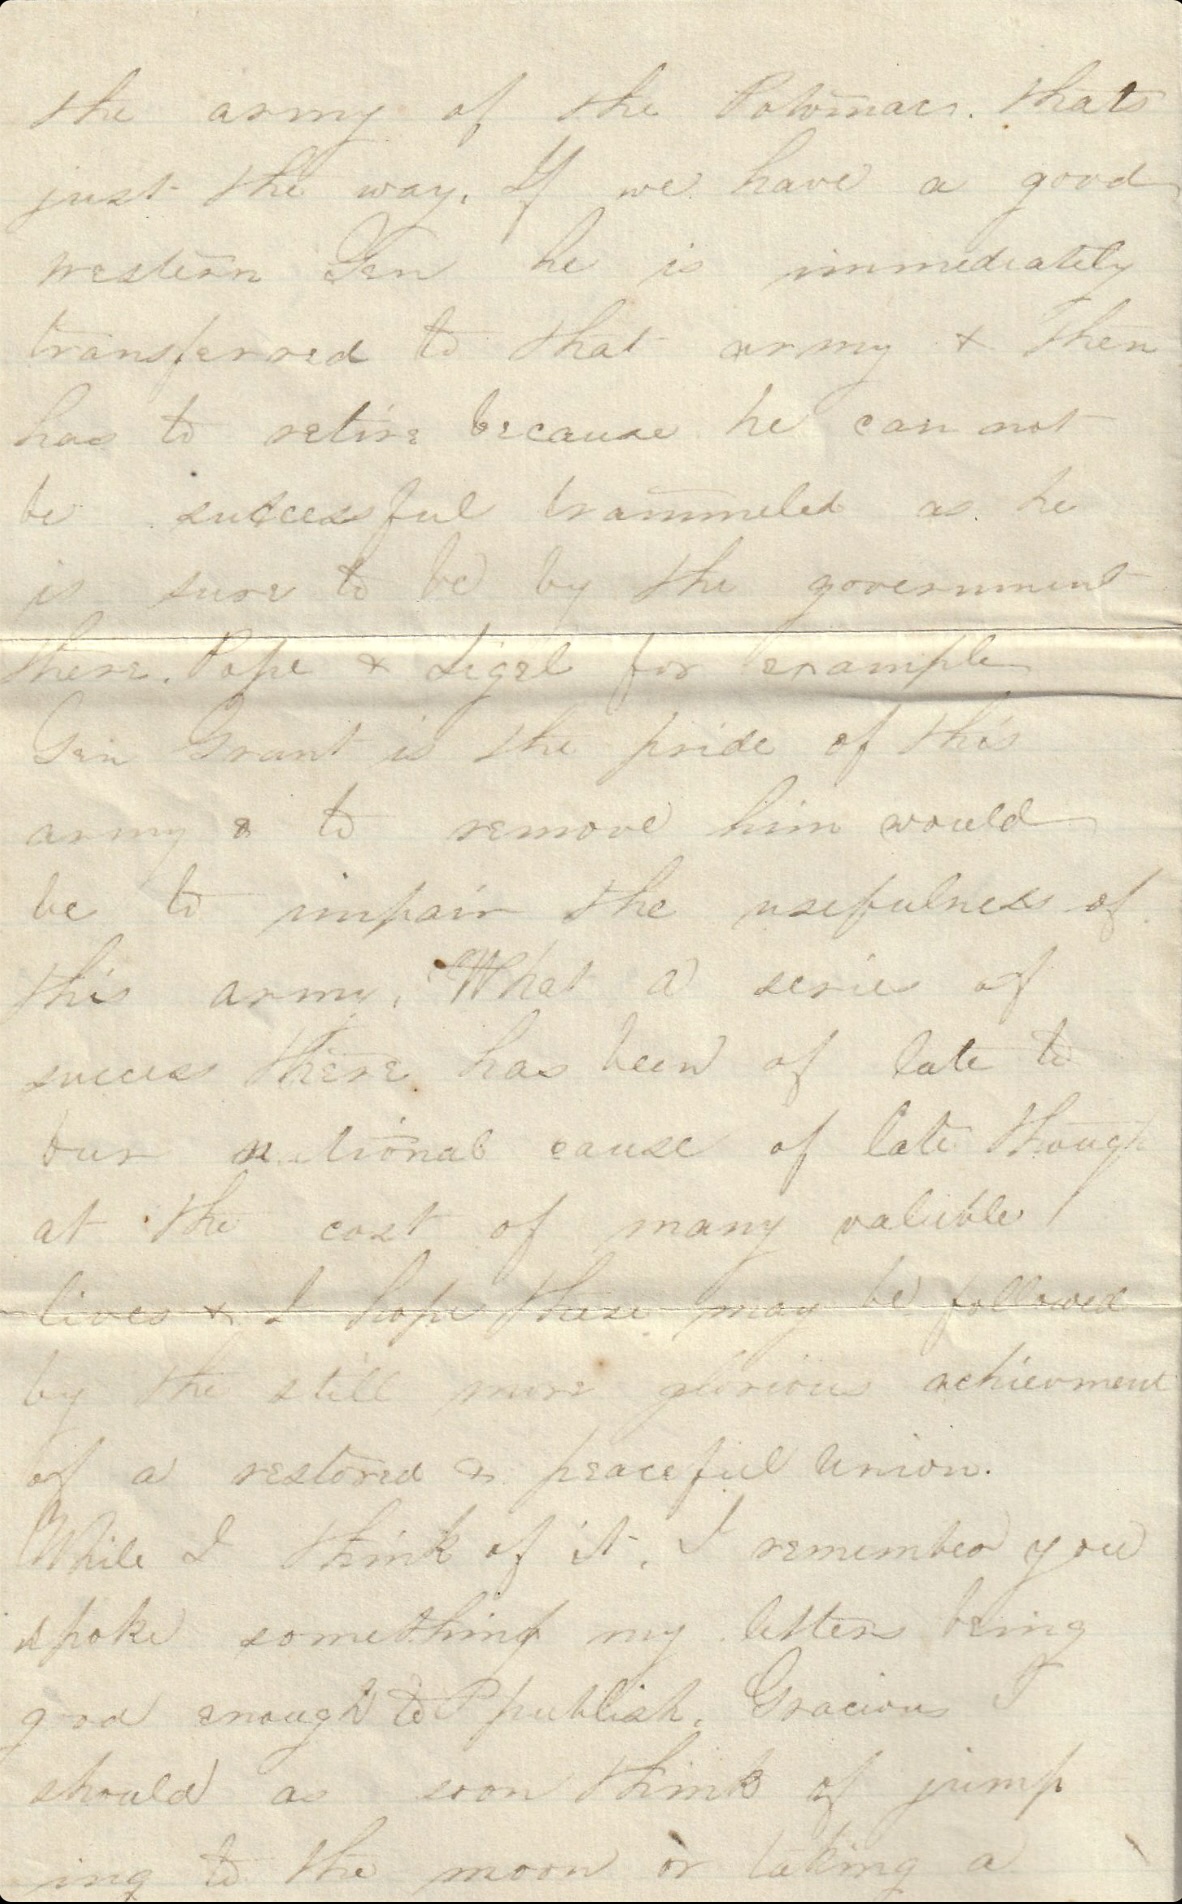 the army of the Potomac. thats
just the way. If we have a good
western Gen he is immediately
transferred to that army & then
has to retire because he can not
be successful trammeled as he
is sure to be by the government
there. Pope & Sigel for example
Gen Grant is the pride of this
army & to remove him would
be to impair the usefulness of
this army. What a series of
success there has been of late to
our national cause of late though
at the cost of many valuble
lives & I hope these may be followed
by the still more glorious achievment
of a restored & peaceful Union.
While I think of it, I remember you
spoke something my letters being
good enough to publish. Gracious I
should as soon think of jump
ing to the moon or taking a